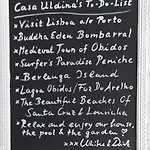 Casa Uldina's To-Do-List
*Visit Lisboa a/o Porto
*Buddha Eden Bombarral
*Medieval Town of Obidos
*Surfer's Paradise Peniche
*Berlenga Island
*Lagoa Obidos/Foz Do Arelho
*The Beautiful Beaches Of
Santa Cruz & Lourinha
*Relax and enjoy our house,
the pool & the garden
xxx